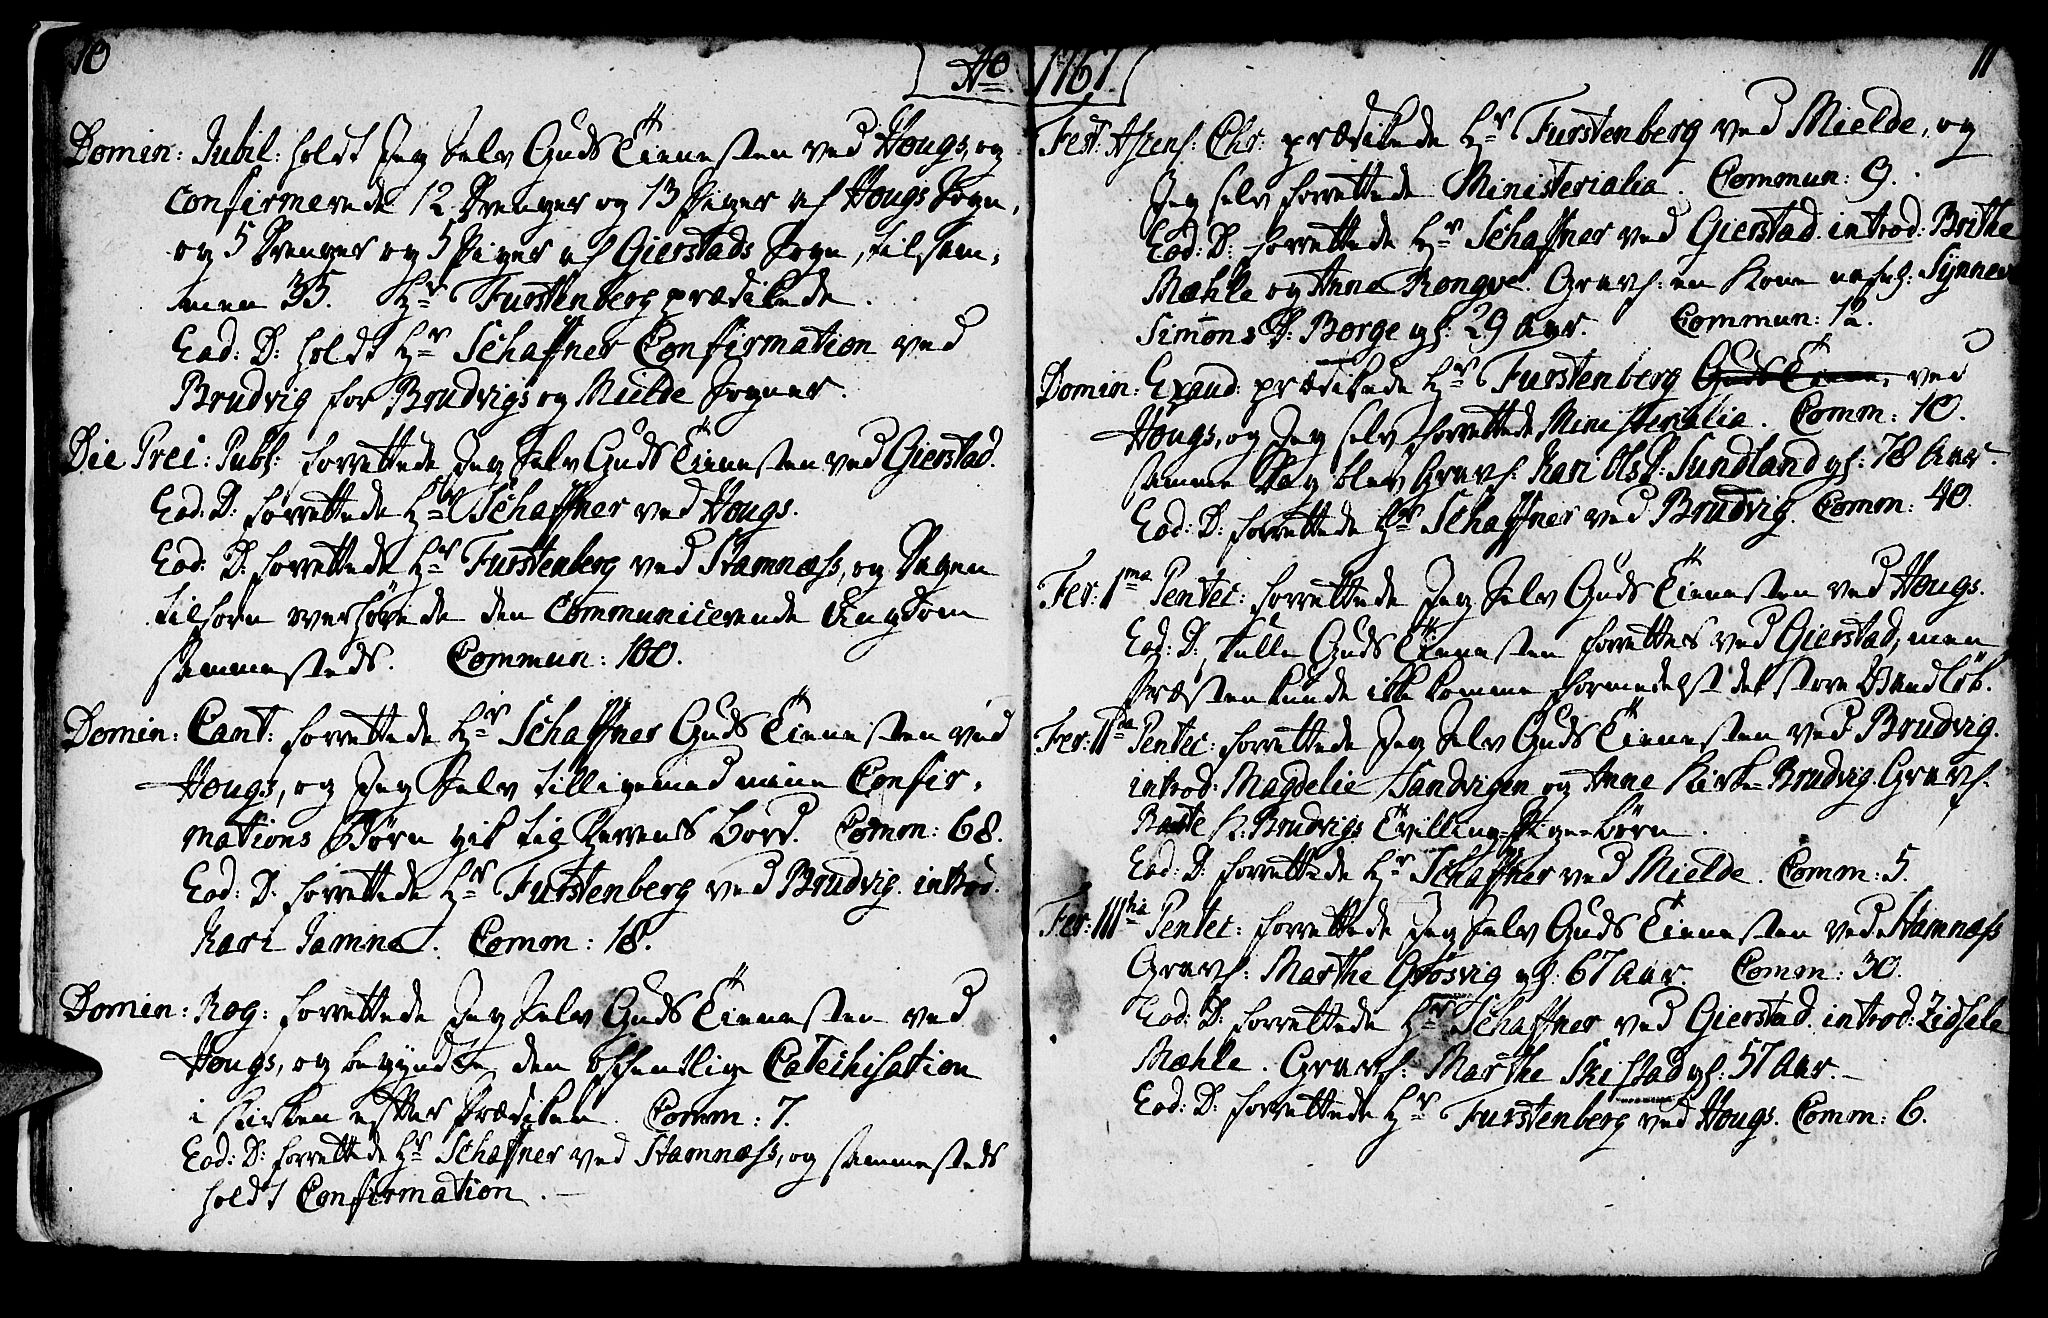 10
Ao 1767.
Domin: Jubil: holdt Jeg Selv Guds Tienesten ved Hougs, og
confirmerede 12 Drenger og 13 Piger af Hougs Sogn,
og 5 Drenger og 5 Piger af Gierstads Sogn, tilsam-
men 35. Hr Furstenberg prædikede.
Eod: D: holdt Hr Schaffner Confirmation ved
Brudvig for Brudvigs og Mielde Sogner.
Die Prei: Publ: forrettede Jeg Selv Guds Tienesten ved Gierstad.
Eod: D: forrettede Hr Schaffner ved Hougs.
Eod: D: forrettede Hr Furstenberg ved Stamnæss, og Dagen
tilforn overhørede den Communicerende Ungdom
sammesteds. Commun: 100.
Domin: Cant: forrettede Hr Schaffner Guds Tienesten ved
Hougs, og Jeg Selv tilligemed mine Confir-
mations Børn gik til Herrens Bord. Comm: 68.
Eod: D: forrettede Hr Furstenberg ved Brudvig. introd.
Kari Jamne. Comm: 18.
Domin: Rog: forrettede Jeg Selv Guds Tienesten ved
Hougs, og begyndte den offentlige Catechisation
i Kirken efter Prædiken. Comm: 7.
Eod: D: forrettede Hr Schaffner ved Stamnæss, og sammesteds
holdt Confirmation.
11
Fest: Ascens: Chr: prædikede Hr Furstenberg ved Mielde, og
Jeg selv forrettede Ministerialia. Commun: 9.
Eod: D: forrettede Hr Schaffner ved Gierstad. introd: Brithe
Mæhle og Anne Rongve. Gravf: en Kone nafnl: Synneve
Simons D: Borge gl: 29 Aar. Commun: 12.
Domin: Exaud: prædikede Hr Furstenberg Guds Tiene, ved
Hougs, og Jeg selv forrettede Ministerialia. Comm: 10.
samme Dag blev Gravf. Kari Ols D: Sundland gl: 78 Aar.
Eod: D: forrettede Hr Schaffner ved Brudvig. Comm: 40.
Fer: 1ma Pentec: forrettede Jeg Selv Guds Tienesten ved Hougs.
Eod: D: skulle Guds Tienesten forrettes ved Gierstad, men
Præsten kunde ikke komme formedelst det store Vandløb.
Fer: IIda Pentec: forrettede Jeg Selv Guds Tienesten ved Brudvig.
introd: Magdelie Sandvigen og Anne Kirke-Brudvig. Gravf.
K: Brudvigs Tvilling-Pige-Børn.
Eod: D: forrettede Hr Schaffner ved Mielde. Comm: 5.
Fer: IIItia Pentec: forrettede Jeg Selv Guds Tienesten ved Stamnæss
Gravf: Marthe Grøsvig gl: 67 Aar. Comm: 30.
Eod: D: forrettede Hr Schaffner ved Gierstad. introd: Zidsele
Mæhle. Gravf: Marthe Skistad gl: 57 Aar.
Eod: D: forrettede Hr Furstenberg ved Hougs. Comm: 6.